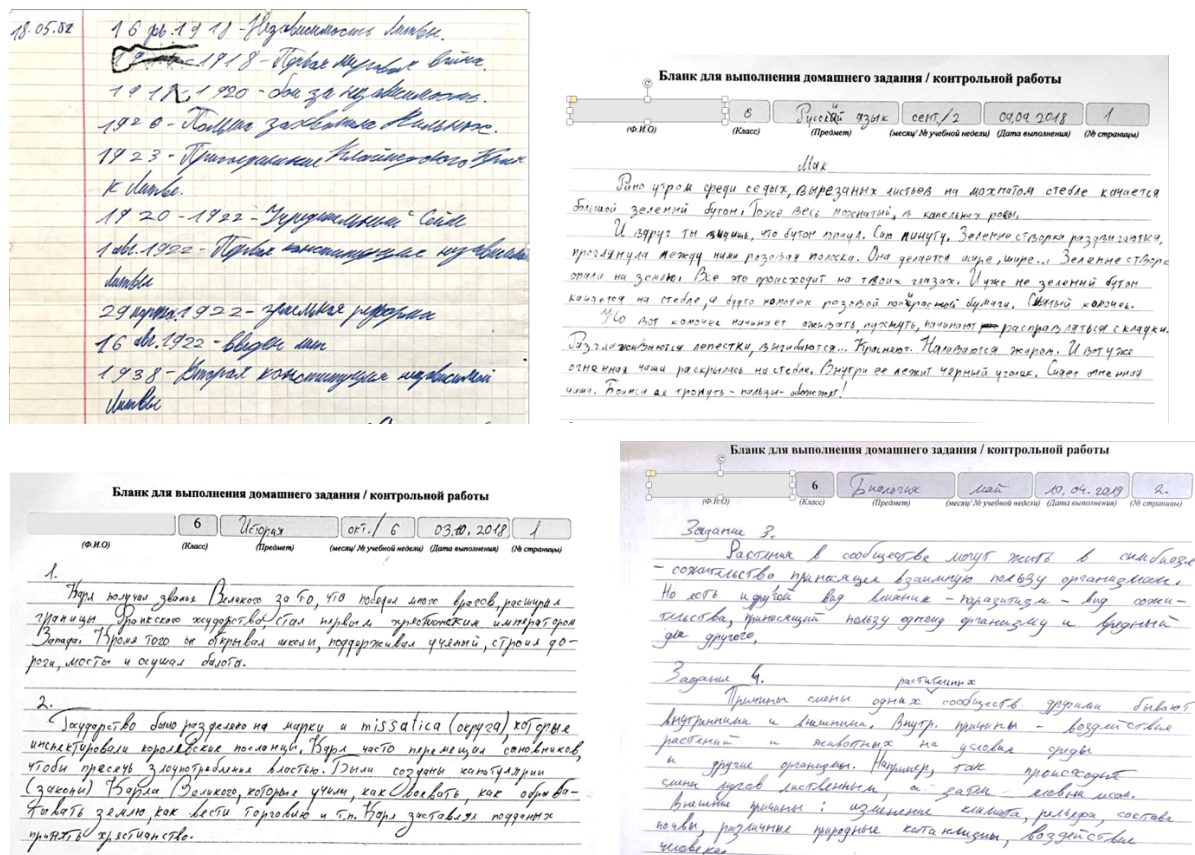 18.05.82
16 фв. 1918 - Независимость Литвы.
1918 - Первая мировая война.
1918 - 1920 - бои за независимость.
1920 - Польша захватила Вильнюс.
1923 - Присоединение Клайпедского Края
к Литве.
1920 - 1922 - Учредительный Сейм
1 авг. 1922 - Первая конституция независимой
Литвы
29 марта 1922 - земельная реформа
16 авг. 1922 - введен лит
1938 - Вторая конституция независимой
Литвы
Бланк для выполнения домашнего задания / контрольной работы
6 Русский язык сент./2 04.09.2018 1
(Ф.И.О) (Класс) (Предмет) (месяц/ № учебной недели) (Дата выполнения) (№ страницы)
Мак
Рано утром среди седых, вырезаных листьев на мохнатом стебле качается
большой зеленый бутон. Тоже весь мохнатый, в капельках росы.
И вдруг ты видишь, что бутон лопнул. Сию минуту. Зеленые створки раздвигаются,
проглянула между ними розовая полоска. Она делается шире, шире... Зеленые створки
опали на землю. Все это происходит на твоих глазах. И уже не зеленый бутон
качается на стебле, а будто комочек розовой папиросной бумаги. Смятый комочек.
Но вот комочек начинает оживать, пухнуть, начинают расправляться складки.
Разглаживаются лепестки, выгибаются... Краснеют. Наливаются жаром. И вот уже
огненная чаша раскрылась на стебле. Внутри ее лежит черный уголек. Сияет огненная
чаша. Боишься ее тронуть - пальцы обожжет!
Бланк для выполнения домашнего задания / контрольной работы
6 История окт./ 6 03.10.2018 1
(Ф.И.О) (Класс) (Предмет) (месяц/ № учебной недели) (Дата выполнения) (№ страницы)
1.
Карл получил званье Великого за то, что победил много врагов, расширил
границы Франкского государства, стал первым христианским императором
Запада. Кроме того он открывал школы, поддерживал учёный, строил до-
роги, мосты и осушал балота.
2.
Государство было разделено на марки и missatica (округа), которые
инспектировали королевские посланцы. Карл часто перемещал сановников,
чтобы пресечь злоупотребленье властью. Были созданы капитулярии
(законы) Карла Великого, которые учили, как воевать, как обраба-
тывать землю, как вести торговлю и т.п. Карл заставлял подданых
принять христианство.
Бланк для выполнения домашнего задания / контрольной работы
6 Биология май 10.04.2019 2.
(Ф.И.О) (Класс) (Предмет) (месяц/ № учебной недели) (Дата выполнения) (№ страницы)
Задание 3.
Растения в сообществе могут жить в симбиозе
- сожительство приносящее взаимную пользу организмам.
Но есть и другой вид влияния - паразитизм - вид сожи-
тельства, приносящий пользу одному организму и вредный
для другого.
Задание 4.
растительных
Причины смены одних сообществ другими бывают
внутренними и внешними. Внутр. причины - воздействие
растений и животных на условия среды
и другие организмы. Например, так происходит
смена лугов лиственным, а затем еловым лесом.
Внешние причины: изменение климата, рельефа, состава
почвы, различные природные катаклизмы, воздействие
человека.